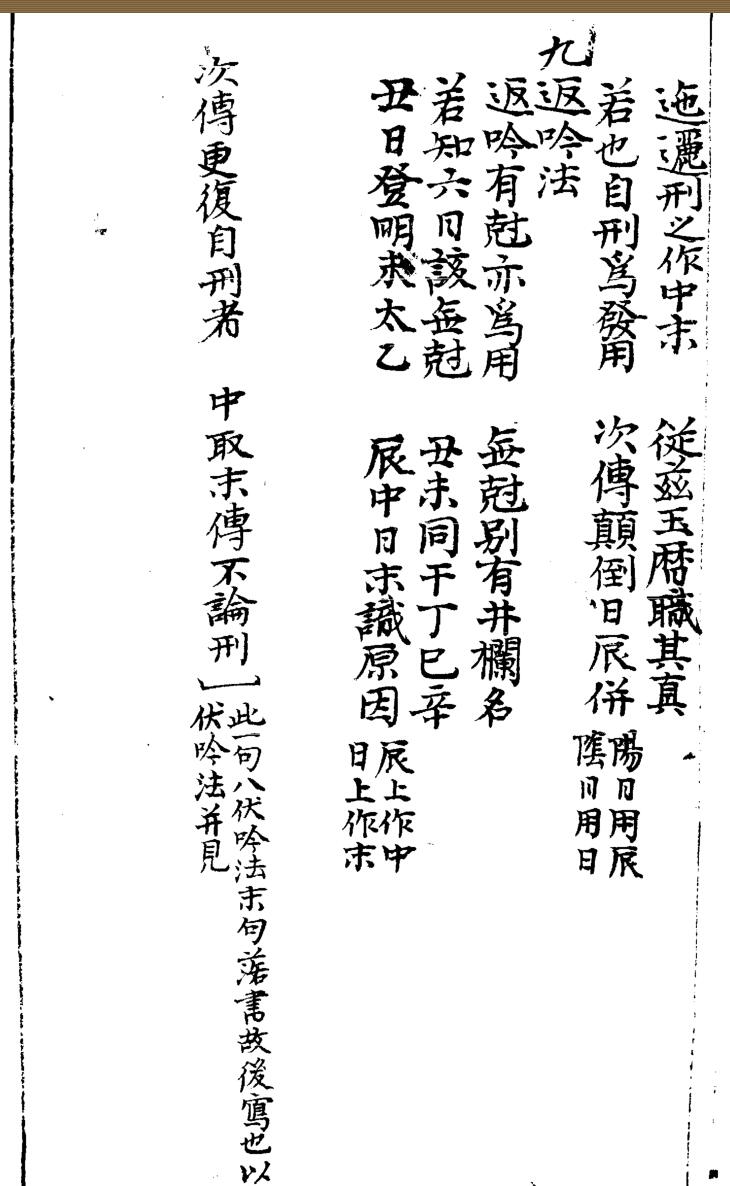 迤邐刑之作中末　從茲玉曆職其真
若也自刑爲發用　次傳顛倒日辰併　陽日用辰
陰日用日
九返吟法
返吟有尅亦爲用　無尅別有井欄名
若知六日該無尅　丑未同干丁巳辛
丑日登明未太乙　辰中日末識原因　辰上作中
日上作末
次傳更復自刑者　中取末傳不論刑　此一句八伏吟法末句落書故後寫也以
伏吟法并見